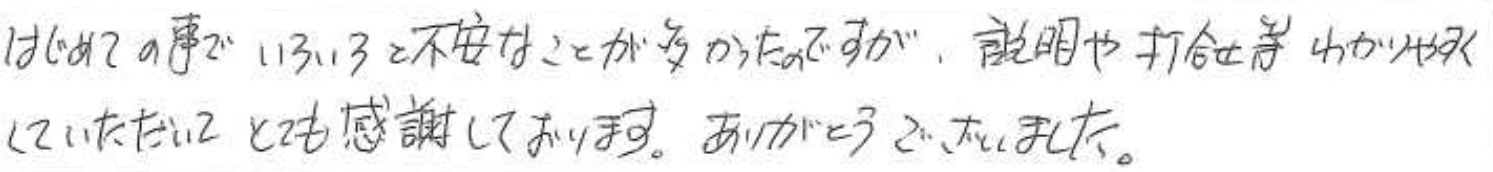 はじめての事で いろいろと不安なことが多かったのですが、説明や打合せ等 わかりやすく
していただいて とても感謝しております。ありがとうございました。